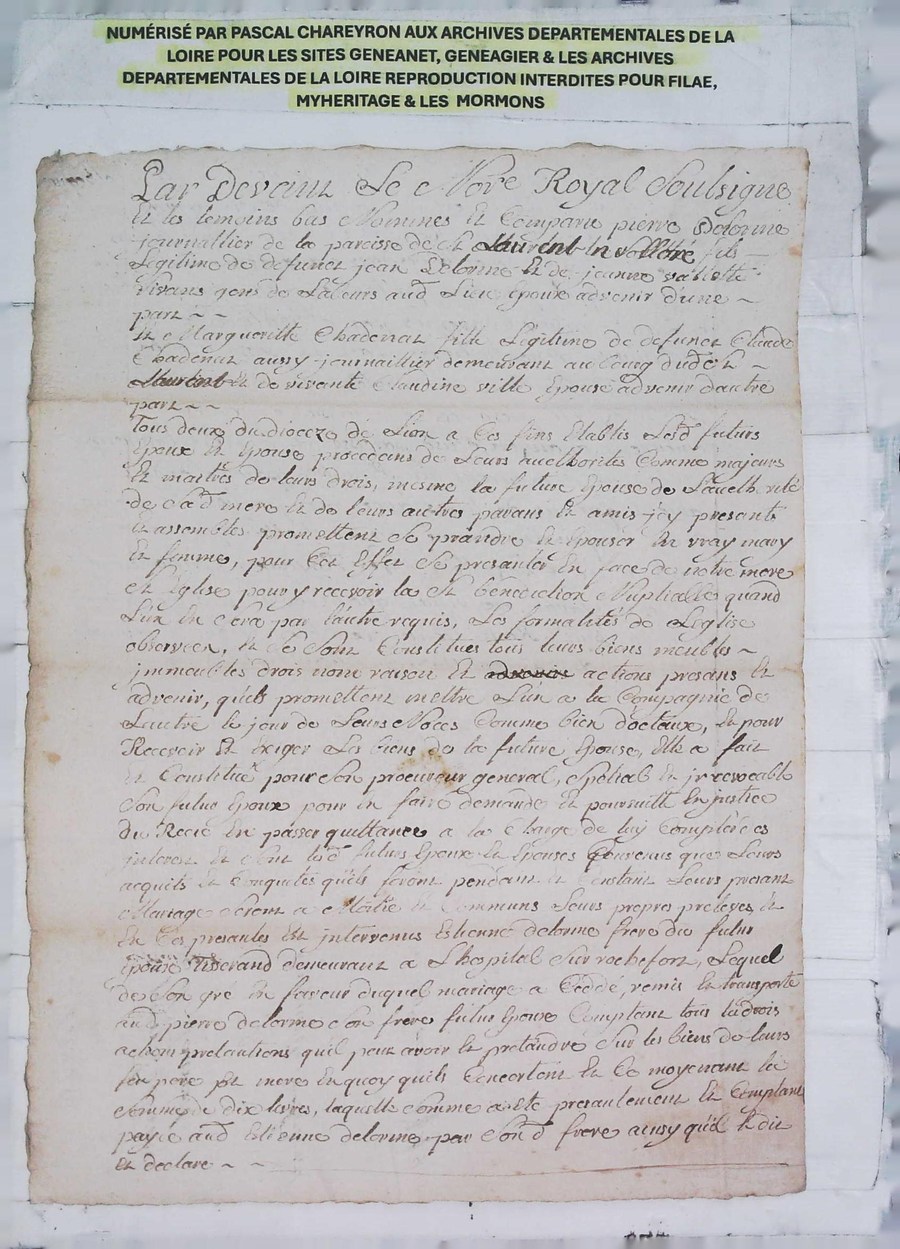 NUMÉRISÉ PAR PASCAL CHAREYRON AUX ARCHIVES DEPARTEMENTALES DE LA
LOIRE POUR LES SITES GENEANET, GENEAGIER & LES ARCHIVES
DEPARTEMENTALES DE LA LOIRE REPRODUCTION INTERDITES POUR FILAE,
MYHERITAGE & LES MORMONS
Par Devant Le Nore Royal Soubsigne
Et les temoins bas Nommes Et Comparu pierre Delorme
journallier de la paroisse de St Laurent fils
Legitime de defunct jean Delorme Et de jeanne
vivans gens de Labeurs aud Lieu Epoux advenir d'une ~
part ~ ~
Et Margueritte Chadenat fille Legitime de defunct Claude
Chadenat aussy journaillier demeurant au bourg dud St ~
Laurent Et de vivante Claudine ville Epouse advenir d'autre
part ~ ~
Tous deux du dioceze de Lion a Ces fins Etablis Lesd futurs
Epoux Et Epouse procedans de Leurs aucthorités Comme majeurs
Et maitres de leurs drois, mesme la future Epouse de L'aucthorité
de sad mere Et de leurs autres parans Et amis jcy presants
Et assemblés promettent Se prandre Et Epouser En vray mary
Et femme, pour Cet Effet Se presanter En face de notre mere
Ste Eglise pour y recevoir la Ste Bénédiction Nuptialle quand
L'un En Sera par l'autre requis, Les formalités de L'Eglise
observées, Et Se Sont Constitués tous leurs biens meubles ~
jmmeubles drois noms raisons Et actions presans Et
advenir, qu'ils promettent mettre L'un a la Compagnie de
L'autre le jour de Leurs Noces Comme bien doctaux, Et pour
Recevoir Et Exiger Les biens de la future Epouse, Elle a fait
Et Constitué pour Son procureur general, Spésial Et jrrevocable
Son futur Epoux pour En faire demande Et poursuitte En justice
du Receu En passer quittance a la Charge de luy
interest Et Sont lesd futurs Epoux Et Epouses Convenus que Leurs
acquits Et Conquetes qu'ils feront pendant Et Constant Leurs presant
Mariage Seront a Moitié Et Communs Leurs propres prelevés, Et
En Ces presantes Est intervenus Estienne delorme frere du futur
Epoux Tisserand demeurant a L'hopital Sur rochefort, Lequel
de Son gré En faveur duquel mariage a Ceddé, remis Et transporté
aud pierre delorme Son frere futur Epoux Comptant tous Les drois
action pretantions quil peut avoir Et pretandre Sur les biens de leurs
feu pere Et mere En quoy quils Concistent Et Ce moyenant la
Somme de dix livres, laquelle Somme a Eté presantement Et Comptant
payée aud Estienne delorme par Sond frere ainsy qu'il le dit
Et declare ~ ~